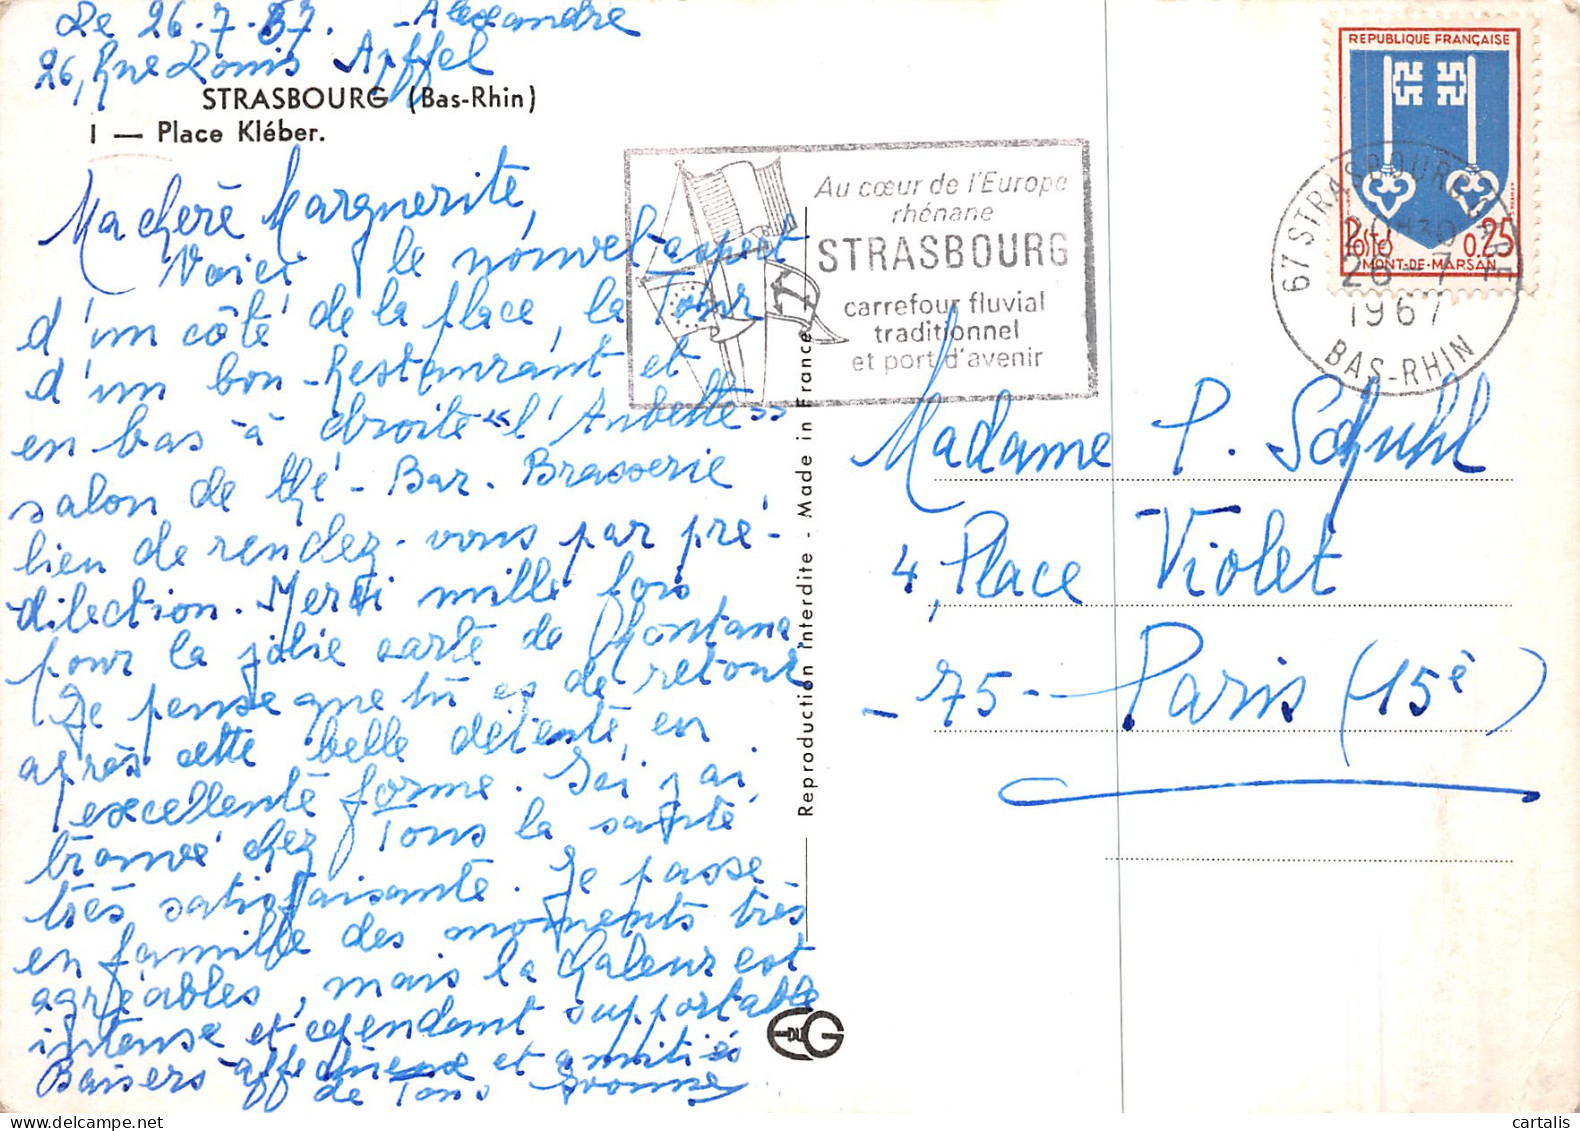 Le 26-7-67. - Alexandre
26, Rue Louis Apffel
STRASBOURG (Bas-Rhin)
I — Place Kléber.
Ma chère Marguerite,
Voici le nouvel aspect
d'un côté de la place, la Tour
d'un bon Restaurant et
en bas à droite « l'Aubette »
salon de thé - Bar - Brasserie
lieu de rendez-vous par pré-
dilection. Merci mille fois
pour la jolie carte de
Je pense que tu es de retour
après cette belle détente, en
excellente forme. Ici j'ai
trouvé chez Tous la santé
très satisfaisante. Je passe
en famille des moments très
agréables, mais la chaleur est
intense et cependant supportable
Baisers affectueux et amitiés
de Tous Yvonne
Reproduction Interdite - Made in France
E DU G
Au cœur de l'Europe
rhénane
STRASBOURG
carrefour fluvial
traditionnel
et port d'avenir
REPUBLIQUE FRANÇAISE
POSTES 0,25
MONT-DE-MARSAN
67 STRASBOURG GARE
20H30
26-7
1967
BAS-RHIN
Madame P. Schuhl
4, Place Violet
- 75 - Paris (15è)
cartalis